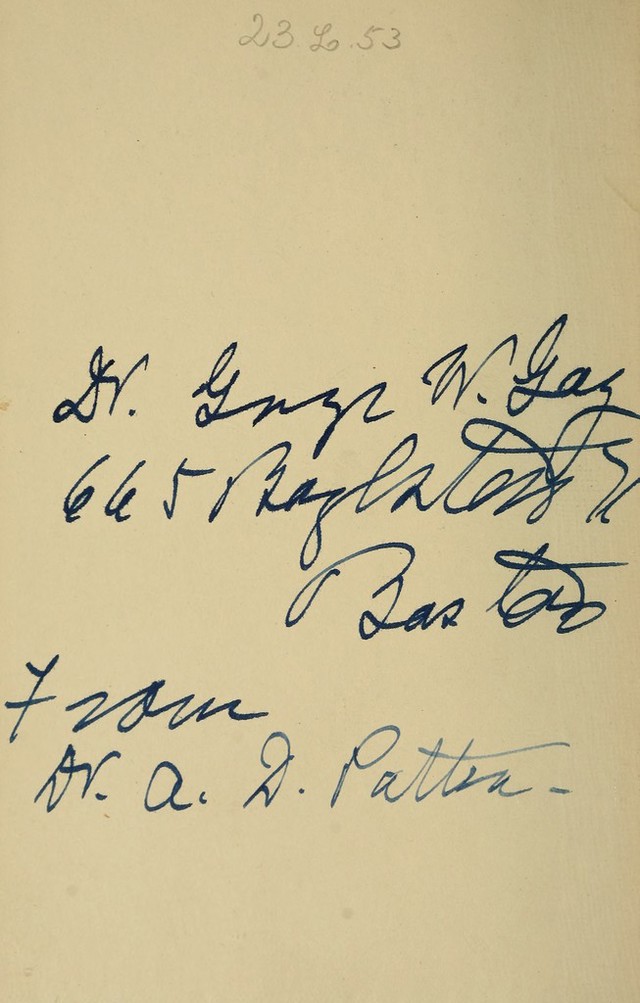 23.L.53
Dr. George W. Gay
665 Boylston St
Boston
From
Dr. A. D. Patten -